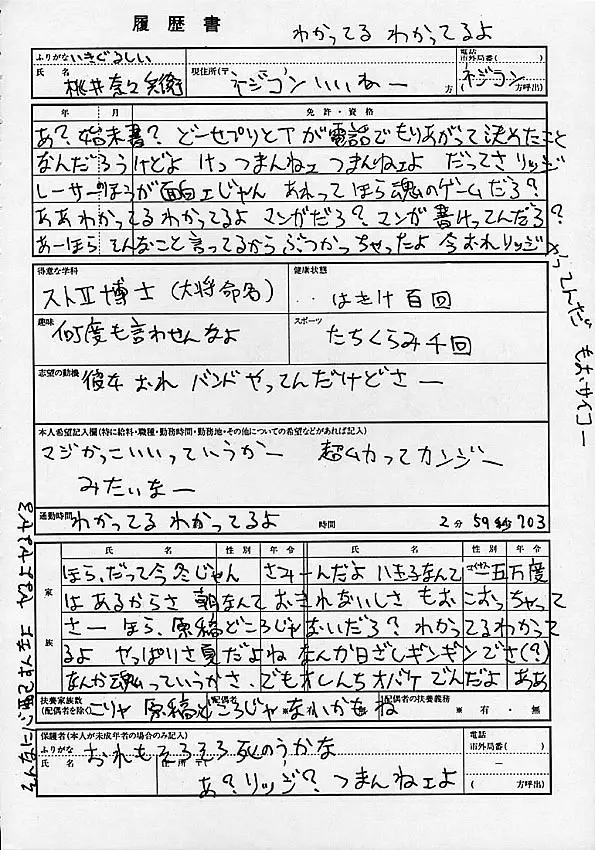 履歴書
わかってる わかってるよ
ふりがな いきぐるしい
氏 名 桃井奈々
現住所(〒 ) ネジコン いいねー 方
電話
市外局番( )
ネジコン
( 方呼出)
年 月 免許・資格
あ？始末書？ どーせプリとTが電話でもりあがって決めたこと
なんだろうけどよ けっつまんねェ つまんねェよ だってさ リッジ
レーサーのほうが面白ェじゃん あれってほら魂のゲームだろ？
ああわかってるわかってるよ マンガだろ？マンガ書けってんだろ？
あーほら てんなこと言ってるからぶつかっちゃったよ 今おれリッジ
やってんださ もおサイコー
得意な学科
ストⅡ博士 (大将命名)
健康状態
‥はきけ百回
趣味
何度も言わせんなよ
スポーツ
たちくらみ千回
志望の動機
彼女 おれ バンドやってんだけどさー
本人希望記入欄(特に給料・職種・勤務時間・勤務地・その他についての希望などがあれば記入)
マジかっこいいっていうかー 超ムカってカンジー
みたいなー
通勤時間 わかってる わかってるよ 時間 2分 59秒703
家族
氏 名 性別 年令 氏 名 性別 年令
ほら、だって今冬じゃん さみーんだよ 八王子なんて 一五万度
はあるからさ 朝なんておきれないしさ もおこおっちゃって
さー ほら、原稿どころじゃないだろ？わかってるわかって
るよ やっぱりさ夏だよね なんか日ざしギンギンでさ(？)
なんか魂っていうかさ、でもオレんちオバケでんだよ ああ
扶養家族数
(配偶者を除く)
配偶者
配偶者の扶養義務
※ 有・無
こりゃ 原稿どころじゃないかもね
保護者(本人が未成年者の場合のみ記入)
ふりがな
氏 名
住 所 (〒 )
おれもそろそろ死のうかな
あ？リッジ？つまんねェよ
電話
市外局番( )
( 方呼出)